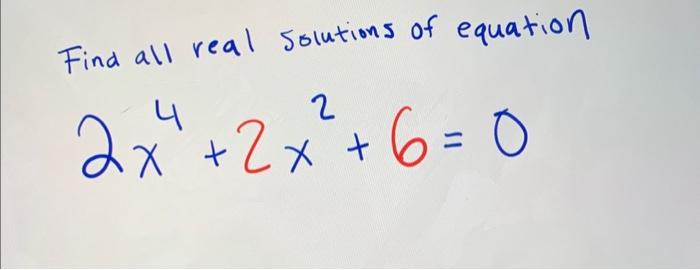 Find all real solutions of equation
2x⁴ + 2x² + 6 = 0